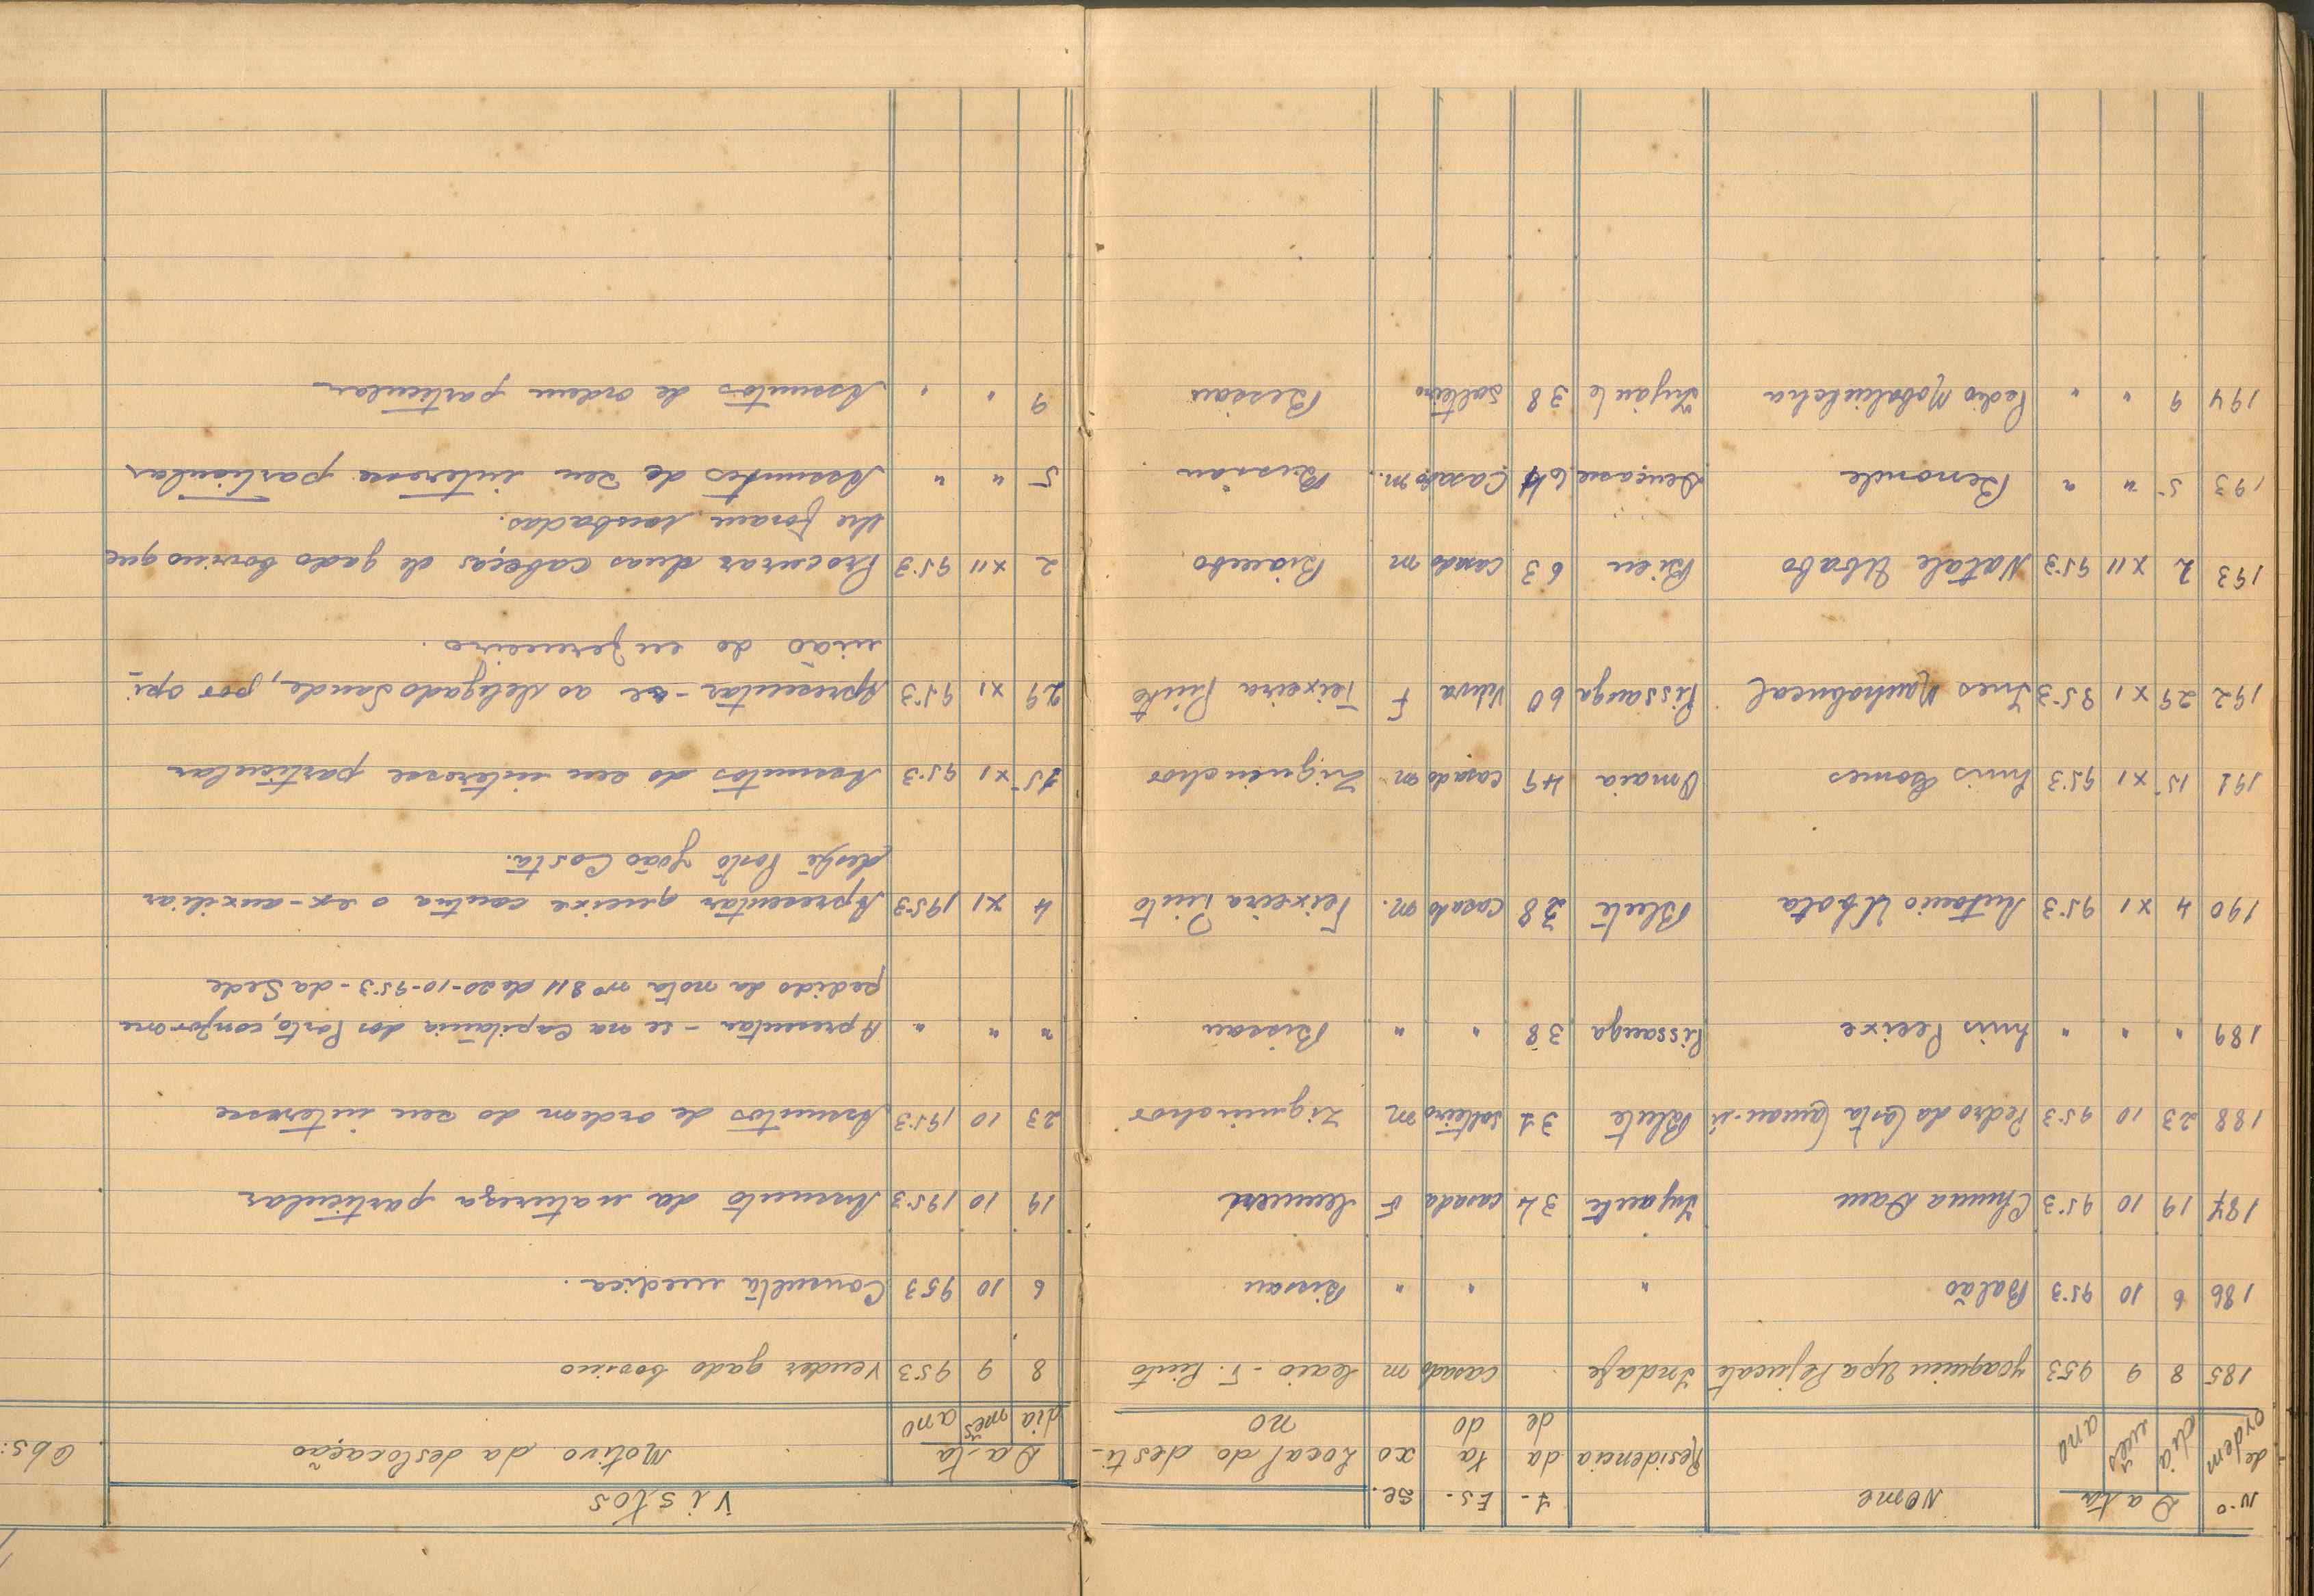 N.o de ordem | Data dia mês ano | Nome | Residencia | I-da de | Es-ta do | se-xo | Local do desti-no | Vistos Data dia mês ano | Motivo da deslocação | Obs:
185 8 9 953 Joaquim Upa Pejucate Indafe casado m Caió - T. Pinto 8 9 953 Vender gado bovino
186 6 10 953 Balão " " " Bissau 6 10 953 Consulta medica.
187 19 10 953 Chuma Dam Injante 34 casada F 19 10 1953 Assunto da natureza particular
188 23 10 953 Pedro da Costa Blute 31 solteiro m Ziguinchor 23 10 1953 Assuntos de ordem do seu interesse
189 " " " Luis Pecixe Pissanga 38 " " Bissau " " " Apresentar-se na Capitania dos Porto, conforme
pedido da nota nº 811 de 20-10-953 - da Sede
190 4 XI 953 Antonio Ubota Blute 38 casado m. Teixeira Pinto 4 XI 1953 Apresentar queixa contra o ex-auxiliar
deste Posto João Costa.
191 15 XI 953 Luis Gomes Omaia 49 casado m Ziguinchor 15 XI 953 Assuntos do seu interesse particular
192 29 XI 953 Ines Pissanga 60 Viuva F Teixeira Pinto 29 XI 953 Apresentar-se ao delegado Saude, por opi-
nião do enfermeiro.
193 2 XII 953 Natale Ubabo Bien 63 casado m Biambo 2 XII 953 Procurar duas cabeças de gado bovino que
lhe foram roubadas.
193 5 " " Benonde 64 Casado m. Bissau 5 " " Assuntos de seu interesse particular
194 9 " " Pedro Injante 38 solteiro Bissau 9 " " Assuntos de ordem particular